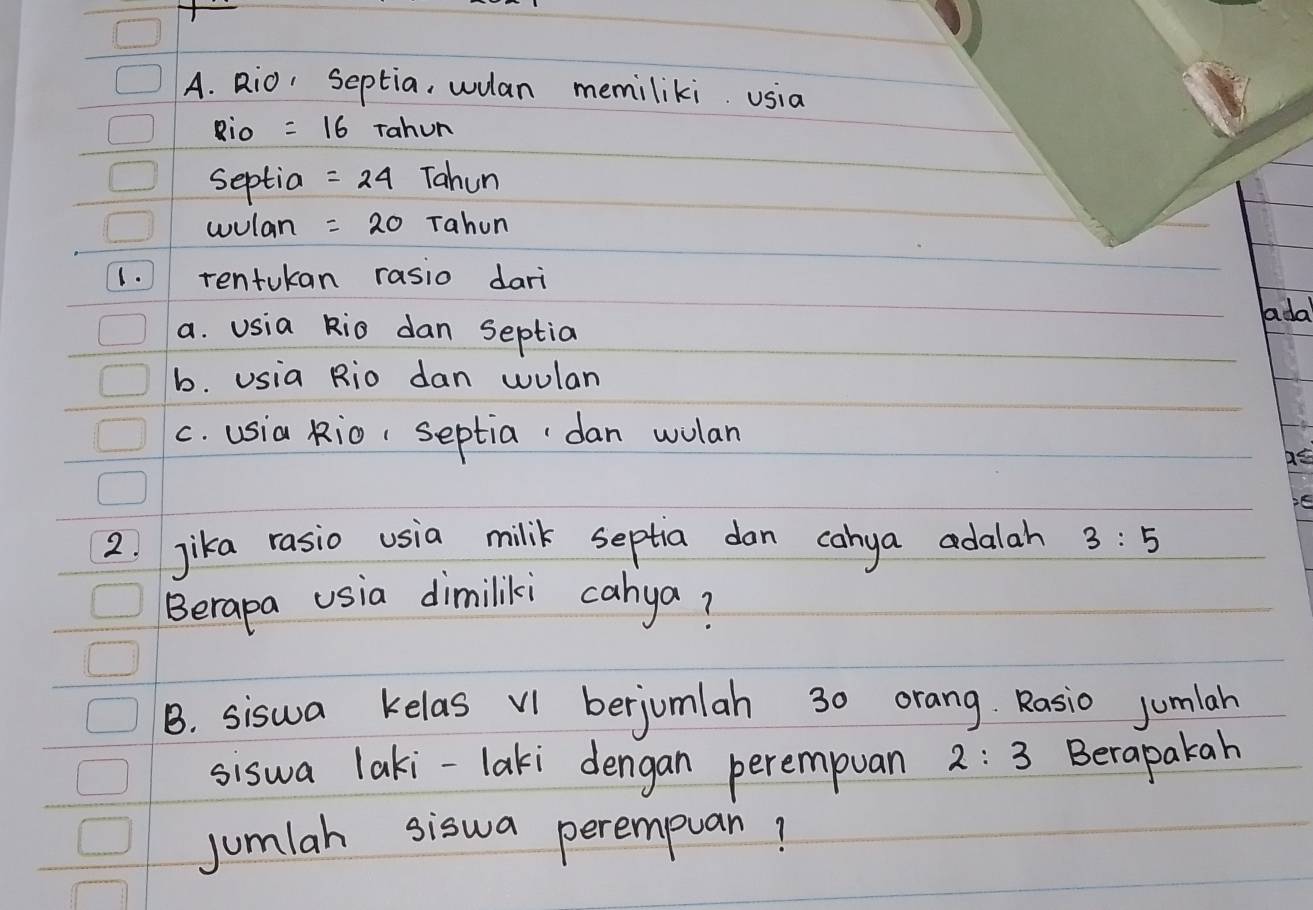 A. Rio, Septia, wulan memiliki usia
Rio = 16 Tahun
Septia = 24 Tahun
wulan = 20 Tahun
1. Tentukan rasio dari
a. usia Rio dan Septia
b. usia Rio dan wulan
c. usia Rio, Septia, dan wulan
2. Jika rasio usia milik septia dan cahya adalah 3 : 5
Berapa usia dimiliki cahya?
B. siswa kelas VI berjumlah 30 orang. Rasio jumlah
siswa laki - laki dengan perempuan 2 : 3 Berapakah
jumlah siswa perempuan?
ada